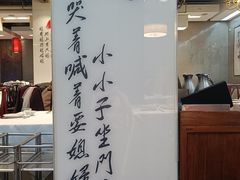 小小子坐門
哭着喊着要媳婦